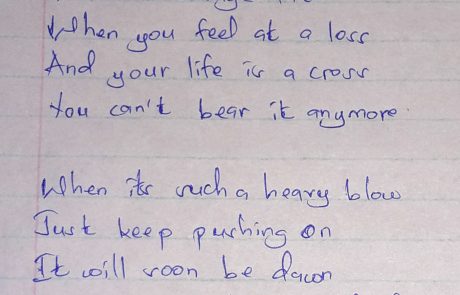 When you feel at a loss
And your life is a cross
You can't bear it anymore.
When its such a heavy blow
Just keep pushing on
It will soon be dawn